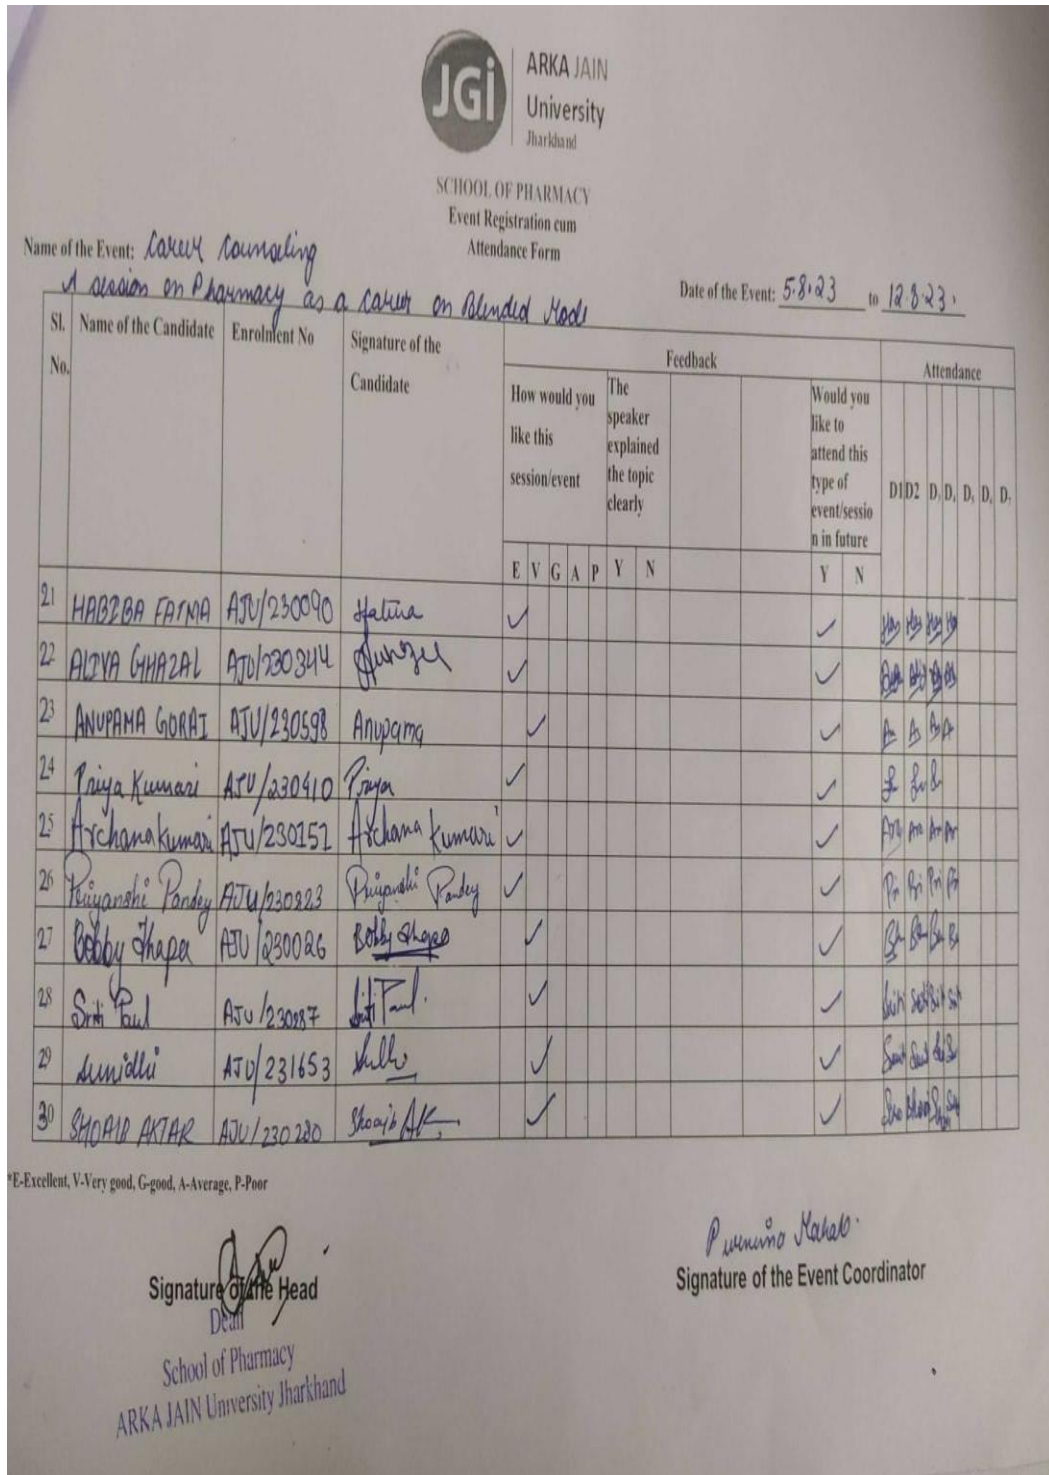 JGi
ARKA JAIN
University
Jharkhand
SCHOOL OF PHARMACY
Event Registration cum
Attendance Form
Name of the Event: Career Counseling
A session on Pharmacy as a career on Blended Mode
Date of the Event: 5.8.23 to 12.8.23.
Sl. No. Name of the Candidate Enrolment No Signature of the Candidate Feedback Attendance
How would you like this session/event The speaker explained the topic clearly Would you like to attend this type of event/session in future D1 D2 D D D D D
E V G A P Y N Y N
21 HABIBA FATMA AJU/230090 Fatma ✓ ✓
22 ALIYA GHAZAL AJU/230344 ✓ ✓
23 ANUPAMA GORAI AJU/230598 Anupama ✓ ✓ An
24 Priya Kumari AJU/230410 Priya ✓ ✓
25 Archana kumari AJU/230151 Archana Kumari ✓ ✓ Ar Ar
26 Priyanshi Pandey AJU/230223 Priyanshi Pandey ✓ ✓ Pri Pri
27 Bobby Thapa AJU/230026 Bobby Thapa ✓ ✓
28 Sriti Paul AJU/230287 Sriti Paul. ✓ ✓ Sriti
29 Sunidhi AJU/231653 ✓ ✓
30 SHOAIB AKTAR AJU/230220 Shoaib AK ✓ ✓
*E-Excellent, V-Very good, G-good, A-Average, P-Poor
Signature of the Head
Dean
School of Pharmacy
ARKA JAIN University Jharkhand
Signature of the Event Coordinator